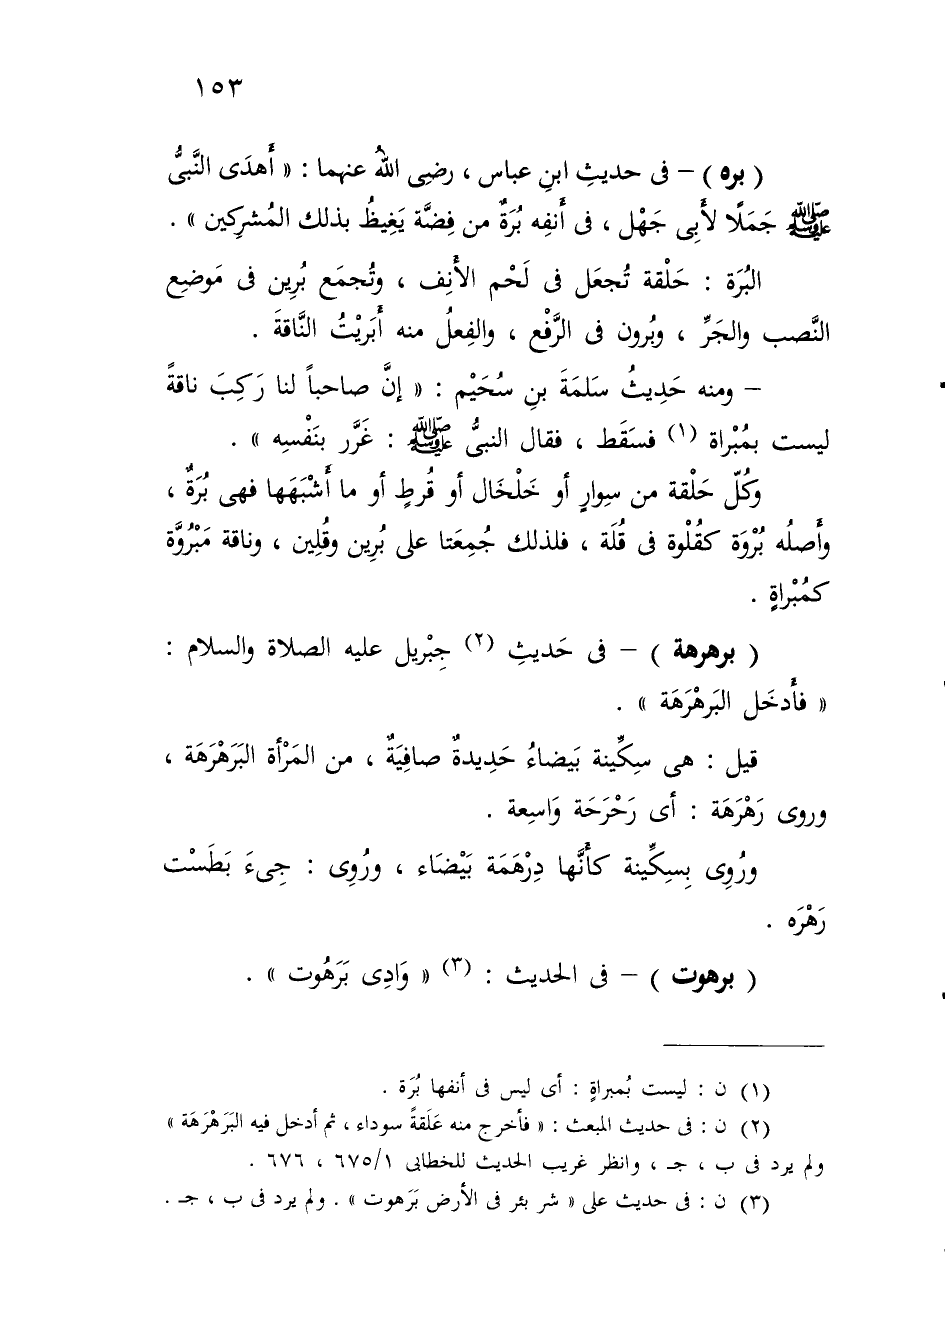 ١٥٣
( بره ) – فى حديثِ ابنِ عباس ، رضِى اللهُ عنهما : « أَهدَى النَّبىُّ
ﷺ جَمَلًا لأَبِى جَهْل ، فى أَنفِه بُرَةٌ من فِضَّة يَغِيظُ بذلك المُشرِكين » .
البُرَة : حَلْقة تُجعَل فى لَحْم الأَنِف ، وتُجمَع بُرِين فى مَوضِع
النَّصب والجَرِّ ، وبُرون فى الرَّفْع ، والفِعلُ منه أَبَريْتُ النَّاقةَ .
– ومنه حَدِيثُ سَلمَةَ بنِ سُحَيْم : « إنَّ صاحباً لنا رَكِبَ ناقةً
ليست بمُبْراة (١) فسَقَط ، فقال النبىُّ ﷺ : غَرَّر بنَفْسِه » .
وكُلّ حَلْقة من سِوارٍ أو خَلْخَال أو قُرطٍ أو ما أَشْبَهَها فهى بُرَةٌ ،
وأَصلُه بُرْوَة كقُلْوة فى قُلَة ، فلذلك جُمِعَتا على بُرِين وقُلِين ، وناقة مَبْرُوَّة
كمُبْراةٍ .
( برهرهة ) – فى حَديثِ (٢) جِبْريل عليه الصلاة والسلام :
« فأَدخَل البَرهْرَهَة » .
قيل : هى سِكِّينة بَيضاءُ حَدِيدةٌ صافِيَةٌ ، من المَرْأة البَرَهْرَهَة ،
وروى رَهْرَهَة : أى رَحْرَحَة وَاسِعة .
ورُوِى بِسِكِّينة كأَنَّها دِرْهَمَة بَيْضَاء ، ورُوِى : جِىءَ بَطَسْت
رَهْرَه .
( برهوت ) – فى الحديث : (٣) « وَادِى بَرَهُوت » .
(١) ن : ليست بُمبراةٍ : أى ليس فى أنفها بُرَة .
(٢) ن : فى حديث المبعث : « فأخرج منه عَلَقةً سوداء ، ثم أدخل فيه البَرَهْرَهَة »
ولم يرد فى ب ، جـ ، وانظر غريب الحديث للخطابى ٦٧٥/١ ، ٦٧٦ .
(٣) ن : فى حديث على « شر بئر فى الأرض بَرَهوت » . ولم يرد فى ب ، جـ .